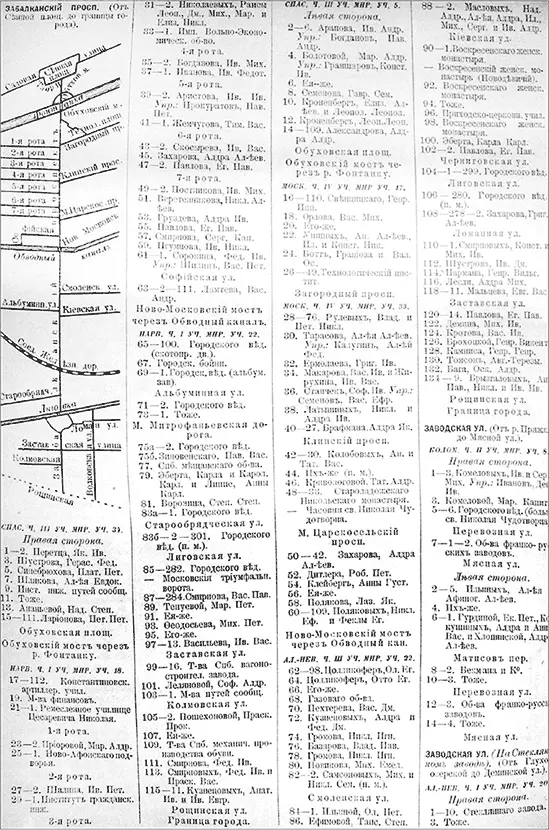 ЗАБАЛКАНСКІЙ ПРОСП. (Отъ
Сѣнной площ. до границы го-
рода).
Садовая
улица
Обуховскій м.
Загородный пр.
1-я рота
2-я рота
3-я рота
4-я рота
5-я рота
6-я рота
7-я рота
Клинскій прос.
М. Царскос. пр.
Обводный
каналъ
Смоленск. ул.
Альбумин. ул.
Кіевская ул.
Старообряд.
Лиговская
Застав
ская улица
Колмовская
Рощинская
СПАС. Ч. III УЧ. МИР. УЧ. 31.
Правая сторона.
1—2. Перетца, Як. Ив.
3. Шустрова, Герас. Фед.
5. Синебрюхова, Плат. Пет.
7. Шлякова, Ал-ѣя Евдок.
9. Инст. инж. путей сообщ.
11. Тоже.
13. Ананьевой, Над. Степ.
15—111. Ларіонова, Пет. Пет.
Обуховская площ.
Обуховскій мостъ черезъ
р. Фонтанку.
НАРВ. Ч. I УЧ. МИР. УЧ. 18.
17—112. Константиновск.
артиллер. учил.
19. М-ва финансовъ.
21—1. Ремесленное училище
Цесаревича Николая.
1-я рота.
23—2. Пріоровой, Мар. Адр.
25—1. Ново-Афонскаго под-
ворья.
2-я рота.
27—2. Шалина, Ив. Пет.
29—1. Институтъ гражданск.
инж.
3-я рота.
31—2. Николаевыхъ, Раисы
Леон., Дм., Мих., Мар. и
Елиз. Никл.
33—1. Имп. Вольно-Экономи-
ческ. об-во.
4-я рота.
35—2. Богданова, Ив. Мих.
37—1. Иванова, Ив. Федот.
5-я рота.
Ив. Ив.
Упр.: Прокуратовъ, Пав.
Пет.
41—1. Жемчугова, Тим. Вас.
6-я рота.
43—2. Скосырева, Ив. Вас.
45. Захарова, Адра Ал-ѣев.
47—2. Павлова, Ег. Пав.
7-я рота.
49—2. Постникова, Ив. Мих.
51. Веретенникова, Никл. Ал-
ѣев.
53. Груздева, Адра Ив.
55. Павлова, Ег. Пав.
57. Смирнова, Серг. Кап.
59. Игумнова, Ив. Никл.
61—1. Сорокина, Фед. Ив.
Упр.: Шилинъ, Вас. Пет.
Софійская ул.
63—2—111. Ламтева, Вас.
Андр.
Ново-Московскій мостъ
черезъ Обводный каналъ.
НАРВ. Ч. I УЧ. МИР. УЧ. 22.
65—100. Городского вѣд.
(скотопр. дв.).
67. Городск. бойни.
69—1. Городск. вѣд. (альбум.
зав).
Альбуминная ул.
71—2. Городского вѣд.
73—1. Тоже.
М. Митрофаньевская до-
рога.
75а—2. Городского вѣд.
75б. Зиновенскаго, Пав. Вас.
77. Спб. мѣщанскаго об-ва.
79. Эберта, Карла и Карол.
Карл. и Лише, Анны
Карл.
81. Воронина, Степ. Степ.
83а—1. Городского вѣд.
Старообрядческая ул.
83б—2—301. Городского
вѣд. (п. м.).
Лиговская ул.
85—282. Городского вѣд.
— Московскія тріумфальн.
ворота.
87—284. Смирнова, Вас. Пав.
89. Тепуевой, Мар. Пет.
91. Ея-же.
93. Феодосьева, Мих. Вас.
95. Его-же.
97—13. Васильева, Ив. Вас.
Заставская ул.
99—16. Т-ва Спб. вагоно-
строител. завода.
101. Леляновой, Соф. Адр.
103—1. М-ва путей сообщ.
Колмовская ул.
105—2. Пошехоновой, Праск.
Прок.
107. Ея-же.
109. Т-ва Спб. механич. про-
изводства обуви.
111. Смирнова, Фед. Ив.
113. Смирновыхъ, Фед. Ив. и
Праск. Вас.
115—11. Кузнецовыхъ, Анат.
Ив. и Ив. Евгр.
Рощинская ул.
Граница города.
СПАС. Ч. III УЧ. МИР. УЧ. 5.
Лѣвая сторона.
2—6. Арапова, Ив. Андр.
Упр.: Богдановъ, Пав.
Анд.
4. Болотовой, Мар. Адр.
Ив.
6. Ея-же.
8. Семенова, Гавр. Сем.
10. Кроненбергъ, Елиз. Ал-
ѣев. и Леопол. Леопол.
12. Кроненбергъ, Леоп. Леоп.
14—109. Александрова, Адра
Адр.
Обуховская площ.
Обуховскій мостъ че-
резъ р. Фонтанку.
МОСК. Ч. IV УЧ. МИР. УЧ. 17.
16—110. Свѣшицкаго, Генр.
Ипп.
18. Орлова, Вас. Мих.
20. Его-же.
24. Боттъ, Франца и Вал.
Ос.
26—49. Технологическій ин-
стит.
Загородный просп.
МОСК. Ч. IV УЧ. МИР. УЧ. 23.
28—76. Рулевыхъ, Влад. и
Пет. Никл.
30. Тарасова, Ал-ѣя Ал-ѣев.
Упр.: Калугинъ, Ал-ѣй
Фед.
32. Ермолаева, Григ. Ив.
34. Макарова, Вас. Ив. и Жи-
рухина, Ив. Вас.
36. Соф. Ив. Упр.:
Семеновъ, Вас. Ефр.
38. Латышныхъ, Никл. и
Адра Ив.
40—27. Брафмана, Адра Як.
Клинскій просп.
42—30. Колобовыхъ, Ан. и
Тат. Вас.
44. Ихъ-же (п. м.).
46. Кривоноговой, Тат. Адр.
48—33. Староладожскаго
Никольскаго монастыря.
— Часовня св. Николая Чу-
дотворца.
М. Царскосельскій
просп.
50—42. Захарова, Адра
Ал-ѣев.
52. Дитлера, Роб. Пет.
54. Клейбергъ, Анны Густ.
56. Ея-же.
58. Полякова, Лаз. Як.
60—102. Поляковыхъ, Никл.
Еф. и Феклы Ег.
Ново-Московскій мостъ
черезъ Обводный кан.
АЛ.-НЕВ. Ч. III УЧ. МИР. УЧ. 22.
62—98. Цолликоферъ, Ол. Ег.
64. Цолликоферъ, Отто Ег.
66. Его-же.
68. Газоваго об-ва.
70. Пехтерева, Вас. Дм.
72. Кузнецовыхъ, Адра и
Фед. Дм.
74. Грохова, Никл. Игн.
76. Базарова, Влад. Пав.
78. Грохова, Никл. Игн.
80. Потихина, Мих. Емел.
82—2. Самсоновыхъ, Мих. и
Никл. Сен. (п. м.).
Смоленская ул.
84—1. Ильиной, Ол. Нет.
86. Ефимовой, Таис. Степ.
88—2. Масловыхъ, Над.
Адр., Ал-ѣя, Адра, Ил.,
Мих., Серг. и Ив. Адр.
Кіевская ул.
90—1. Воскресенскаго женск.
монастыря.
— Воскресенскій женск. мо-
настырь (Новодѣвичій).
92. Воскресенскаго женск.
монастыря.
94. Тоже.
96. Приходско-церкви. учил.
98. Воскресенскаго женск.
монастыря.
100. Эберта, Карла Карл.
102—2. Павлова, Ег. Пав.
Черниговская ул.
104—1—299. Городского вѣд.
Лиговская ул.
106—280. Городского вѣд.
(п. м.).
108—278—2. Захарова, Григ.
Ал-ѣев.
Ломаная ул.
110—1. Смирновыхъ, Конст. и
Мих. Ив.
112. Шустрова, Ив. Дм.
114. Пармана, Генр. Вильг.
116. Лесли, Адра Мих.
118—11. Мальцева, Евг. Вас.
Заставская ул.
120—14. Павлова, Ег. Пав.
122. Демина, Мих. Ив.
124. Кротова, Вас. Ив.
126. Брохоцкой, Генр. Викент.
128. Камписа, Генр. Генр.
130. Томсонъ, Авг.-Терезы.
132. Вага, Оск. Адр.
134—9. Брызгаловыхъ, Ап.
Пав., Никл. и Ив. Ив.
Рощинская ул.
Граница города.
ЗАВОДСКАЯ УЛ. (Отъ р. Пряжки
до Мясной ул.).
КОЛОМ. Ч. II УЧ. МИР. УЧ. 8.
Правая сторона.
1—3. Комеловыхъ, Ив. и Сер.
Мих. Упр.: Ивановъ, Дем.
Ив.
3. Комеловой, Мар. Капит.
5—6. Городского вѣд. (больн.
св. Николая Чудотворца).
Перевозная ул.
7—1—2. Об-ва франко-рус-
скихъ заводовъ.
Мясная ул.
Лѣвая сторона.
2—5. Ильиныхъ, Ал-ѣя и
Афиног. Ал-ѣев.
4. Ихъ-же.
6—1. Гурдиной, Ек. Пет., Ко-
кушкиныхъ, Адра и Анны
Вас. и Хлопинской, Адры
Ал-ѣев.
Матисовъ пер.
8—2. Бехмана и К°.
10—3. Тоже.
Перевозная ул.
12—3. Об-ва франко-русск.
заводовъ.
14—4. Тоже.
Мясная ул.
ЗАВОДСКАЯ УЛ. (На Стеклян-
номъ заводѣ). (Отъ Глухо-
озерской до Деминской ул.).
АЛ.-НЕВ. Ч. I УЧ. МИР. УЧ. 20.
Правая сторона.
1—10. Стеклянаго завода.
3. Тоже.